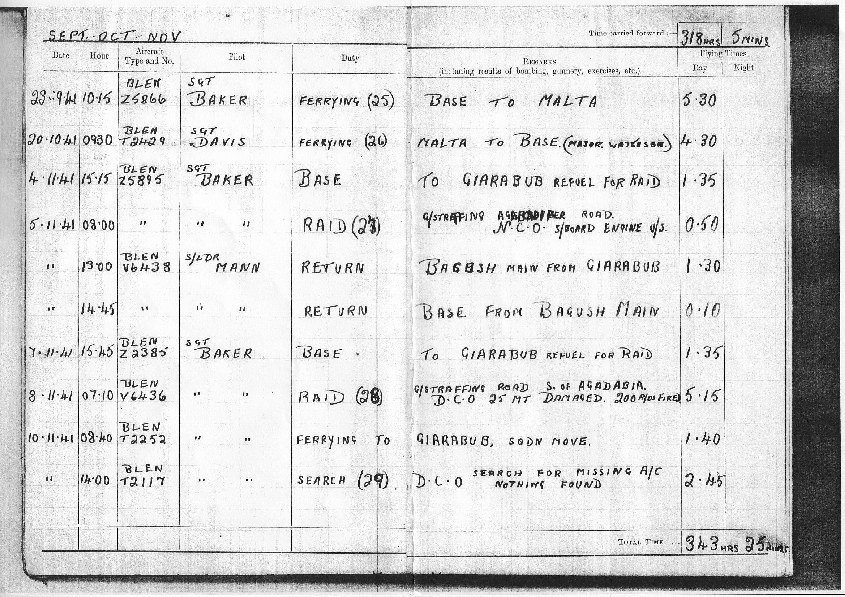 SEPT. OCT. NOV
Time carried forward :— 318 HRS 5 MINS
Date Hour Aircraft Type and No. Pilot Duty REMARKS (including results of bombing, gunnery, exercises, etc.) Flying Times Day Night
28.9.41 10.15 BLEN Z5866 SGT BAKER FERRYING (25) BASE TO MALTA 5.30
20.10.41 0930 BLEN T2429 SGT DAVIS FERRYING (26) MALTA TO BASE. (MAJOR WATERSON) 4.30
4.11.41 15.15 BLEN Z5895 SGT BAKER BASE TO GIARABUB REFUEL FOR RAID 1.35
5.11.41 08.00 " " " RAID (27) G/STRAFFING ROAD. N.C.O. S/BOARD ENGINE U/S. 0.50
" 13.00 BLEN V6438 S/LDR MANN RETURN BAGUSH MAIN FROM GIARABUB 1.30
" 14.45 " " " RETURN BASE FROM BAGUSH MAIN 0.10
7.11.41 15.45 BLEN Z2385 SGT BAKER BASE . TO GIARABUB REFUEL FOR RAID 1.35
8.11.41 07.10 BLEN V6436 " " RAID (28) G/STRAFFING ROAD S. OF AGADABIA. D.C.O 25 MT DAMAGED. 200 FIRED 5.15
10.11.41 08.40 BLEN T2252 " " FERRYING TO GIARABUB, SQDN MOVE. 1.40
" 14.00 BLEN T2117 " " SEARCH (29) D.C.O SEARCH FOR MISSING A/C NOTHING FOUND 2.45
TOTAL TIME ... 343 HRS 25 MINS